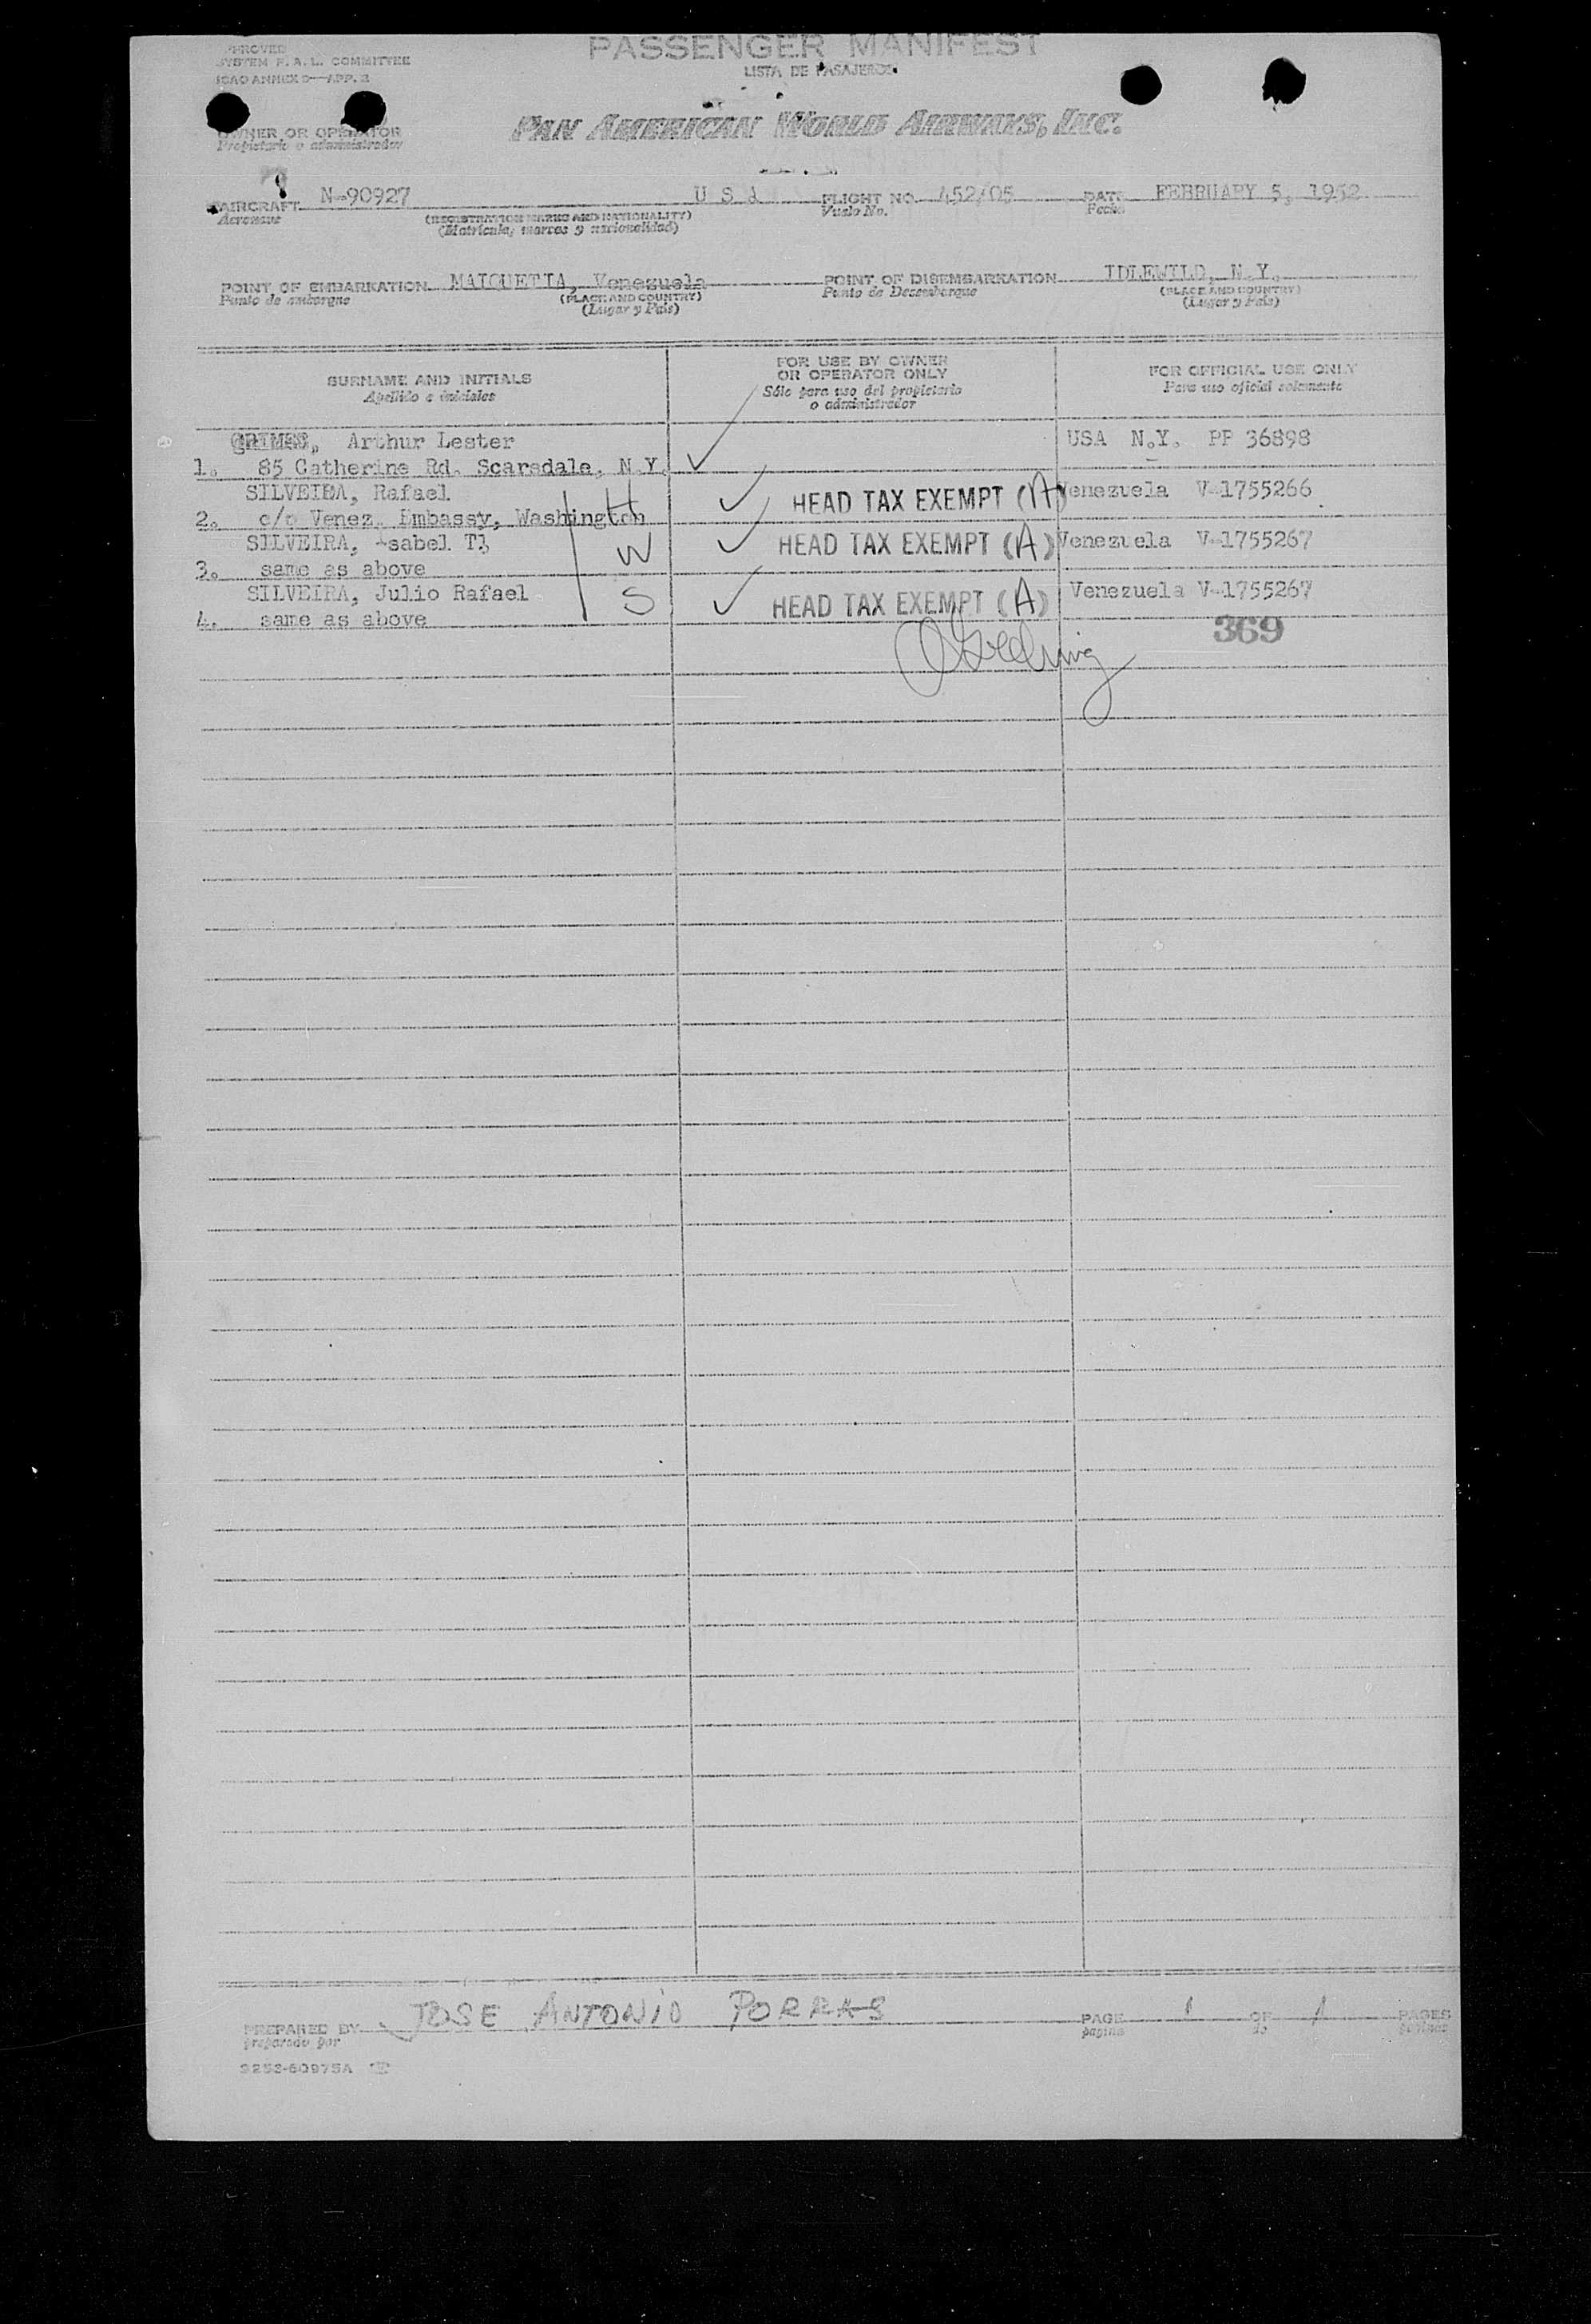 APPROVED
SYSTEM F.A.L. COMMITTEE
ICAO ANNEX 9—APP. 2
PASSENGER MANIFEST
LISTA DE PASAJEROS
OWNER OR OPERATOR
Propietario o administrador
PAN AMERICAN WORLD AIRWAYS, INC.
AIRCRAFT N-90927 U S A FLIGHT NO. 452/05 DATE FEBRUARY 5, 1952
Aeronave (REGISTRATION MARKS AND NATIONALITY) Vuelo No. Fecha
(Matrícula, marcas y nacionalidad)
POINT OF EMBARKATION MAIQUETIA, Venezuela POINT OF DISEMBARKATION IDLEWILD, N.Y.
Punto de embarque (PLACE AND COUNTRY) Punto de Desembarque (PLACE AND COUNTRY)
(Lugar y País) (Lugar y País)
SURNAME AND INITIALS FOR USE BY OWNER OR OPERATOR ONLY FOR OFFICIAL USE ONLY
Apellido e iniciales Sólo para uso del propietario o administrador Para uso oficial solamente
GRIMES, Arthur Lester USA N.Y. PP 36898
1. 85 Catherine Rd. Scarsdale, N.Y.
SILVEIRA, Rafael H HEAD TAX EXEMPT (A) Venezuela V-1755266
2. c/o Venez. Embassy, Washington
SILVEIRA, Isabel T. W HEAD TAX EXEMPT (A) Venezuela V-1755267
3. same as above
SILVEIRA, Julio Rafael S HEAD TAX EXEMPT (A) Venezuela V-1755267
4. same as above
369
PREPARED BY JOSE ANTONIO PORRAS PAGE 1 OF 1 PAGES
preparado por pagina de paginas
3252-60975A